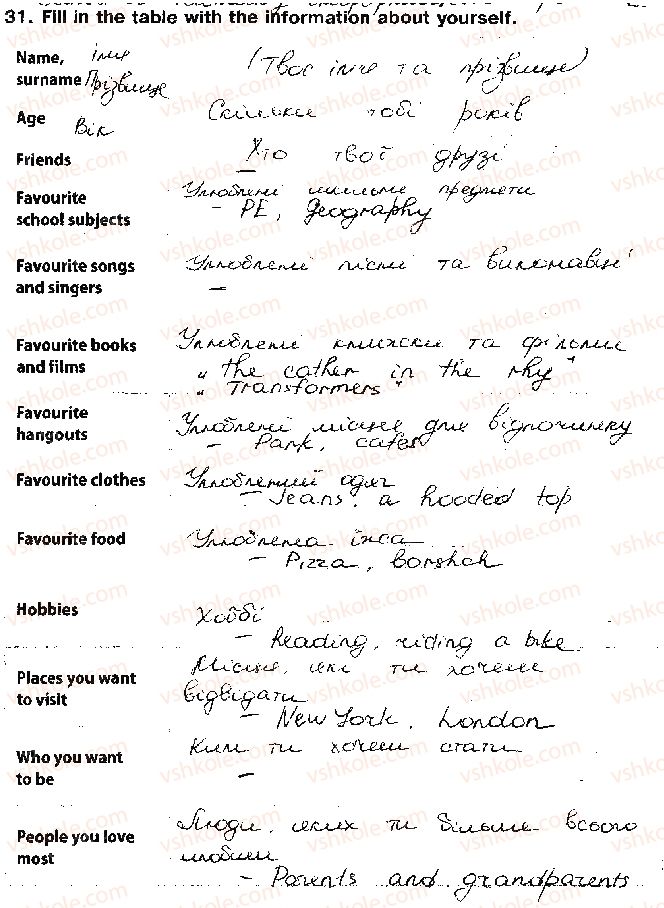 31. Fill in the table with the information about yourself.
Name, імя
surname Прізвище
(Твоє імя та прізвище)
Age Вік
Скільки тобі років
Friends
Хто твої друзі
Favourite
school subjects
Улюблені шкільні предмети
- PE, geography
Favourite songs
and singers
Улюблені пісні та виконавці
-
Favourite books
and films
Улюблені книжки та фільми
„the cather in the rhy"
„Transformers"
Favourite
hangouts
Улюблені місця для відпочинку
- Park, cafes
Favourite clothes
Улюблений одяг
- Jeans, a hooded top
Favourite food
Улюблена їжа
- Pizza, borshch
Hobbies
Хоббі
- Reading, riding a bike
Places you want
to visit
Місця, які ти хочеш
відвідати
- New York, London
Who you want
to be
Ким ти хочеш стати
-
People you love
most
Люди, яких ти більше всього
любиш
- Parents and grandparents
vshkole.com